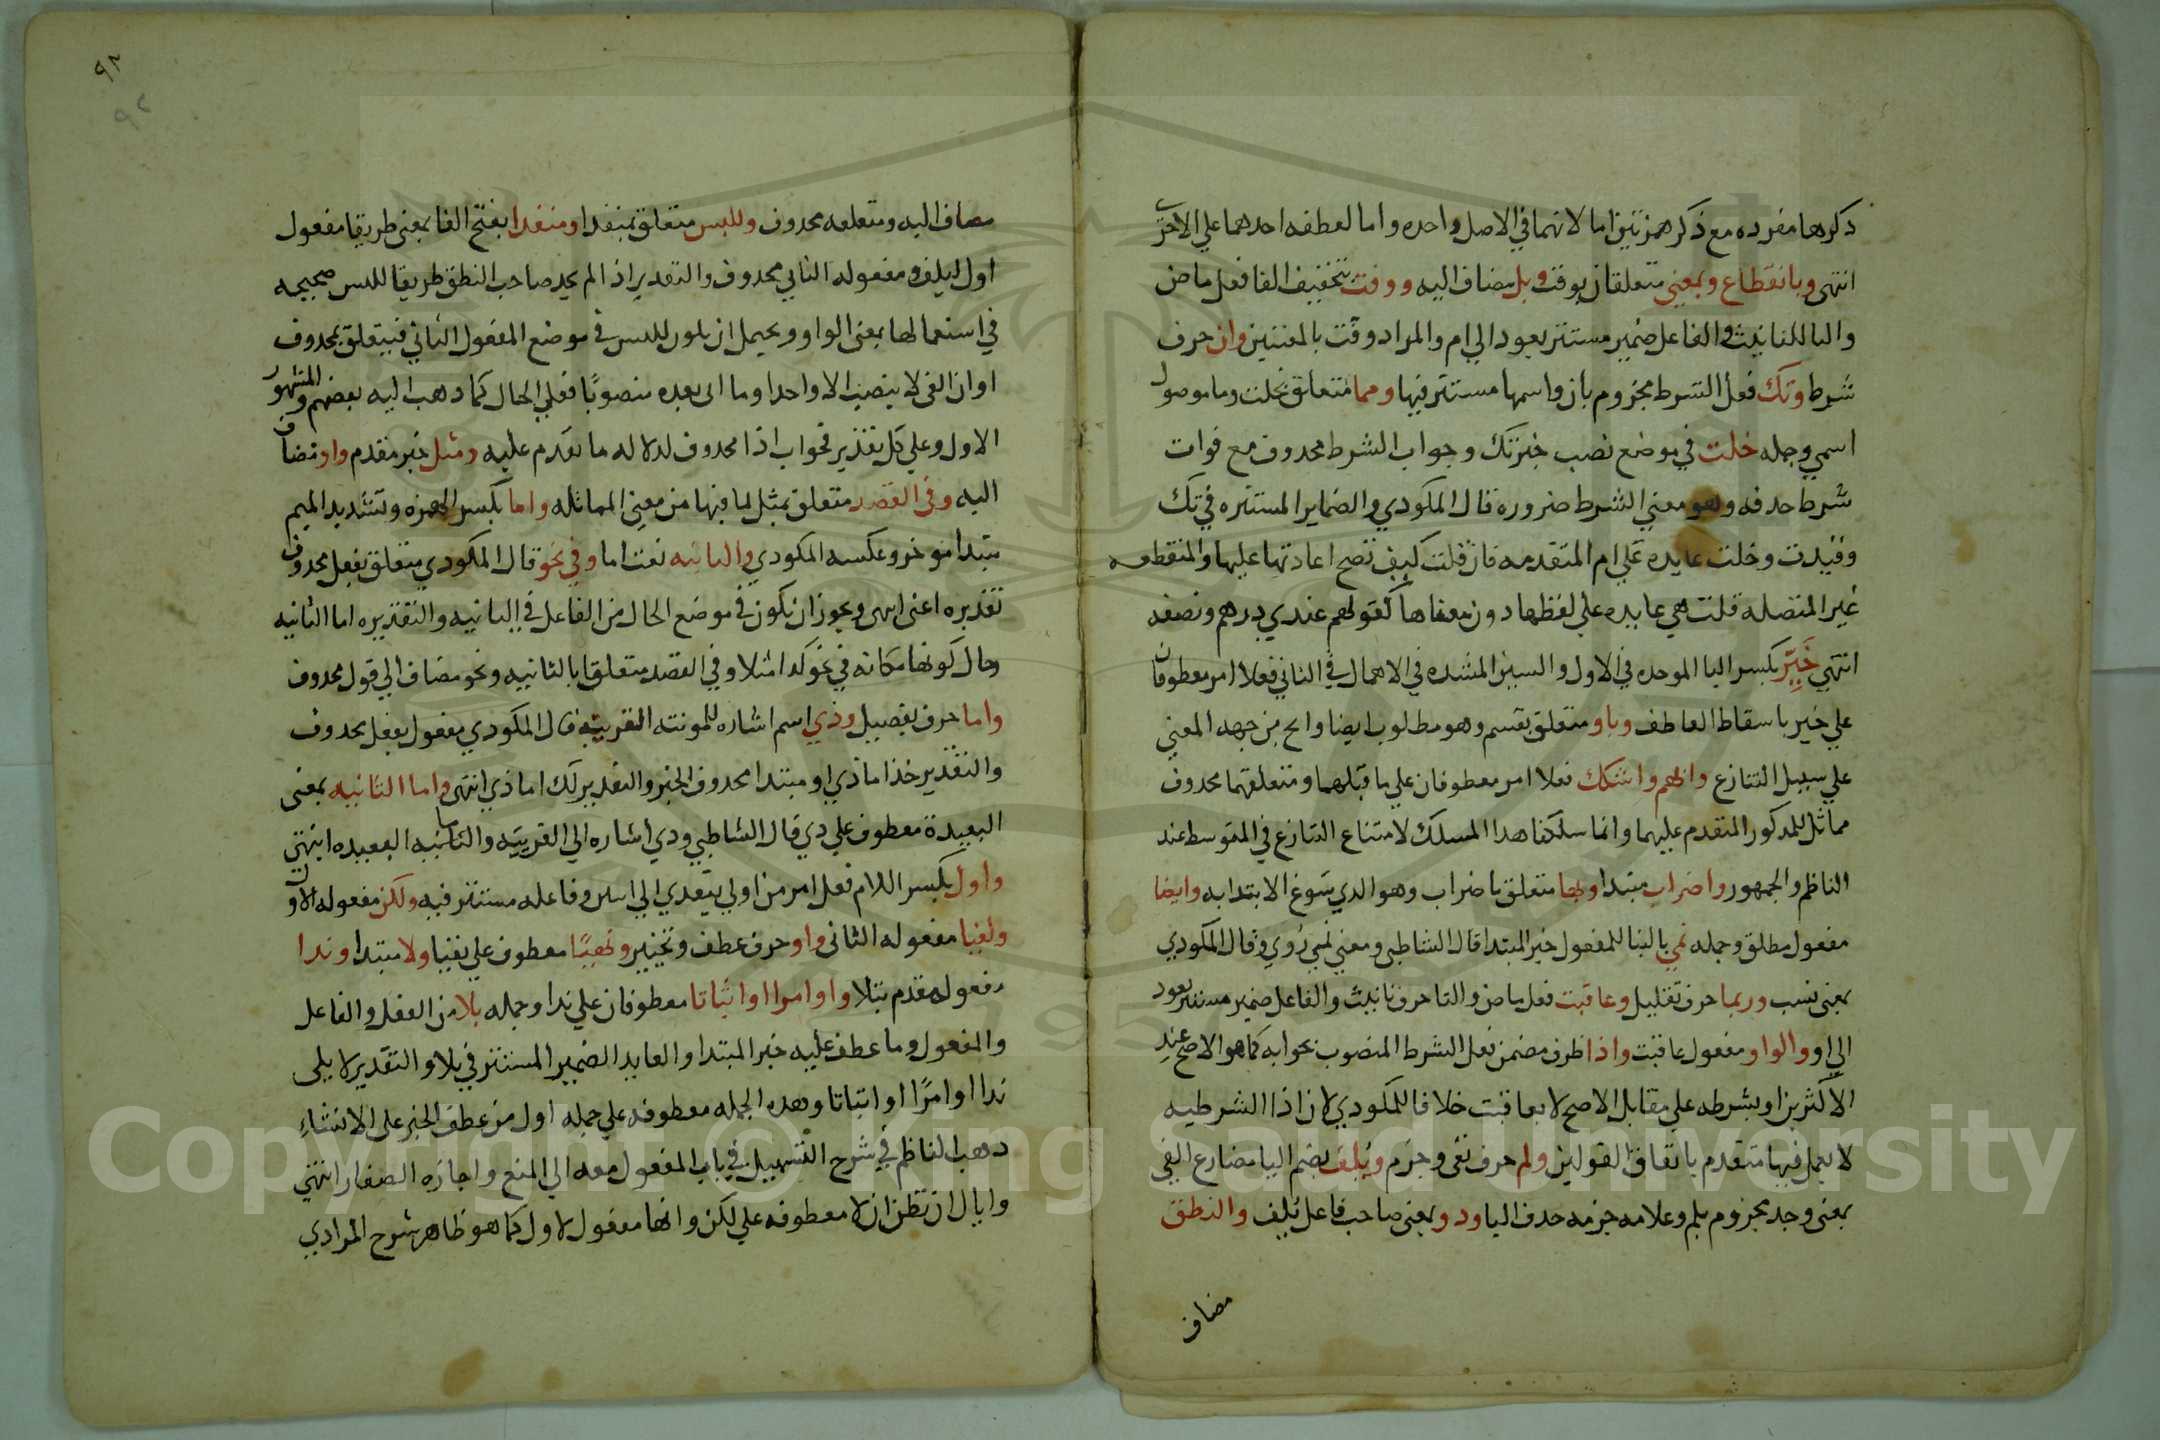 ذكرها مفرده مع ذكر همزتين اما لانهما في الاصل واحده واما لعطفه احدهما علي الاخري
انتهي وبانقطاع وبمعني متعلقان بوفت وبل مضاف اليه ووفت بتخفيف الفا فعل ماض
والتا للتانيث والفاعل ضمير مستتر يعود الي ام والمراد وفت بالمعنيين وان حرف
شرط وتك فعل الشرط مجزوم بان واسمها مستتر فيها ومما متعلق بخلت وما موصول
اسمي وجمله خلت في موضع نصب خبر تك وجواب الشرط محذوف مع فوات
شرط حذفه وهو معني الشرط ضروره قال المكودي والضماير المستتره في تك
وقيدت وخلت عايده علي ام المتقدمه فان قلت كيف تصح اعادتها عليها والمنقطعه
غير المتصله قلت هي عايده علي لفظها دون معناها كقولهم عندي درهم ونصفه
انتهي خير بكسر اليا الموحده في الاول والسين المشده في الاهمال في الثاني فعلا امر معطوفان
علي خير باسقاط العاطف وباو متعلق بقسم وهو مطلوب ايضا وابح من جهه المعني
علي سبيل التنازع وابهم واشكك فعلا امر معطوفان علي ما قبلهما ومتعلقهما محذوف
مماثل للمذكور المتقدم عليهما وانما سلكنا هذا المسلك لامتناع التنازع في المتوسط عند
الناظم والجمهور واضراب مبتدا وبها متعلق باضراب وهو الذي سوغ الابتدا به وايضا
مفعول مطلق وجمله نمي بالبنا للمفعول خبر المبتدا قال الشاطبي ومعني نمي روي وقال المكودي
بمعني نسب وربما حرف تقليل وعاقبت فعل ماض والتا حرف تانيث والفاعل ضمير مستتر يعود
الي او والواو مفعول عاقبت واذا ظرف مضمن فعل الشرط المنصوب بجوابه كما هو الاصح عند
الاكثرين او بشرطه علي مقابل الاصح لا بعاقبت خلافا للمكودي لان اذا الشرطيه
لا يعمل فيها متقدم باتفاق القولين ولم حرف نفي وجزم ويلف بضم اليا مضارع الفي
بمعني وجد مجزوم بلم وعلامه جزمه حذف اليا وذو بمعني صاحب فاعل يلف والنطق
مضاف
٩٢
٩٢
مضاف اليه ومتعلقه محذوف وللبس متعلق بمنفدا ومنفدا بفتح الفا بمعني طريقا مفعول
اول ليلف ومفعوله الثاني محذوف والتقدير اذا لم يجد صاحب النطق طريقا للبس صحيحه
في استعمالها بمعني الواو ويحتمل ان يكون للبس في موضع المفعول الثاني فيتعلق بمحذوف
او ان الفي لا ينصب الا واحدا وما اتي بعده منصوبا فعلي الحال كما ذهب اليه بعضهم والمشهور
الاول وعلي كل تقدير فجواب اذا محذوف لدلاله ما تقدم عليه ومثل خبر مقدم واو مضاف
اليه وفي القصد متعلق بمثل لما فيها من معني المماثله واما بكسر الهمزه وتشديد الميم
مبتدا موخر وعكسه المكودي والثانيه نعت اما وفي نحو قال المكودي متعلق بفعل محذوف
تقديره اعني انتهي ويجوز ان يكون في موضع الحال من الفاعل في الثانيه والتقديره اما الثانيه
وحال كونها كائنه في نحو كذا مثلا وفي القصد متعلقا بالثانييه ونحو مضاف الي قول محذوف
واما حرف تفصيل وذي اسم اشاره للمونثه القريبه قال المكودي مفعول بفعل محذوف
والتقدير خذ اما ذي او مبتدا محذوف الخبر والتقدير لك اما ذي انتهي واما النائيه بمعني
البعيدة معطوف علي ذي قال الشاطبي وذي اشاره الي القريبه والنائيه البعيده انتهي
واول بكسر اللام فعل امر من اولي يتعدي الي اثنين وفاعله مستتر فيه ولكن مفعوله الاول
ونفيا مفعوله الثاني واو حرف عطف وتخيير ونهيا معطوف علي نفيا ولا مبتدا وندا
مفعول مقدم بتلا واو امرا او اثباتا معطوفان علي ندا وجمله تلا من الفعل والفاعل
والمفعول وما عطف عليه خبر المبتدا والعايد الضمير المستتر في تلا والتقدير لا يلي
ندا او امرا او اثباتا وهذه الجمله معطوفه علي جمله اول من عطف الخبر علي الانشاء
ذهب الناظم في شرح التسهيل في باب المفعول معه الي المنع واجازه الصفار انتهي
واياك ان تظن ان لا معطوفه علي لكن وانها مفعول لاول كما هو ظاهر شرح المرادي
Copyright © King Saud University